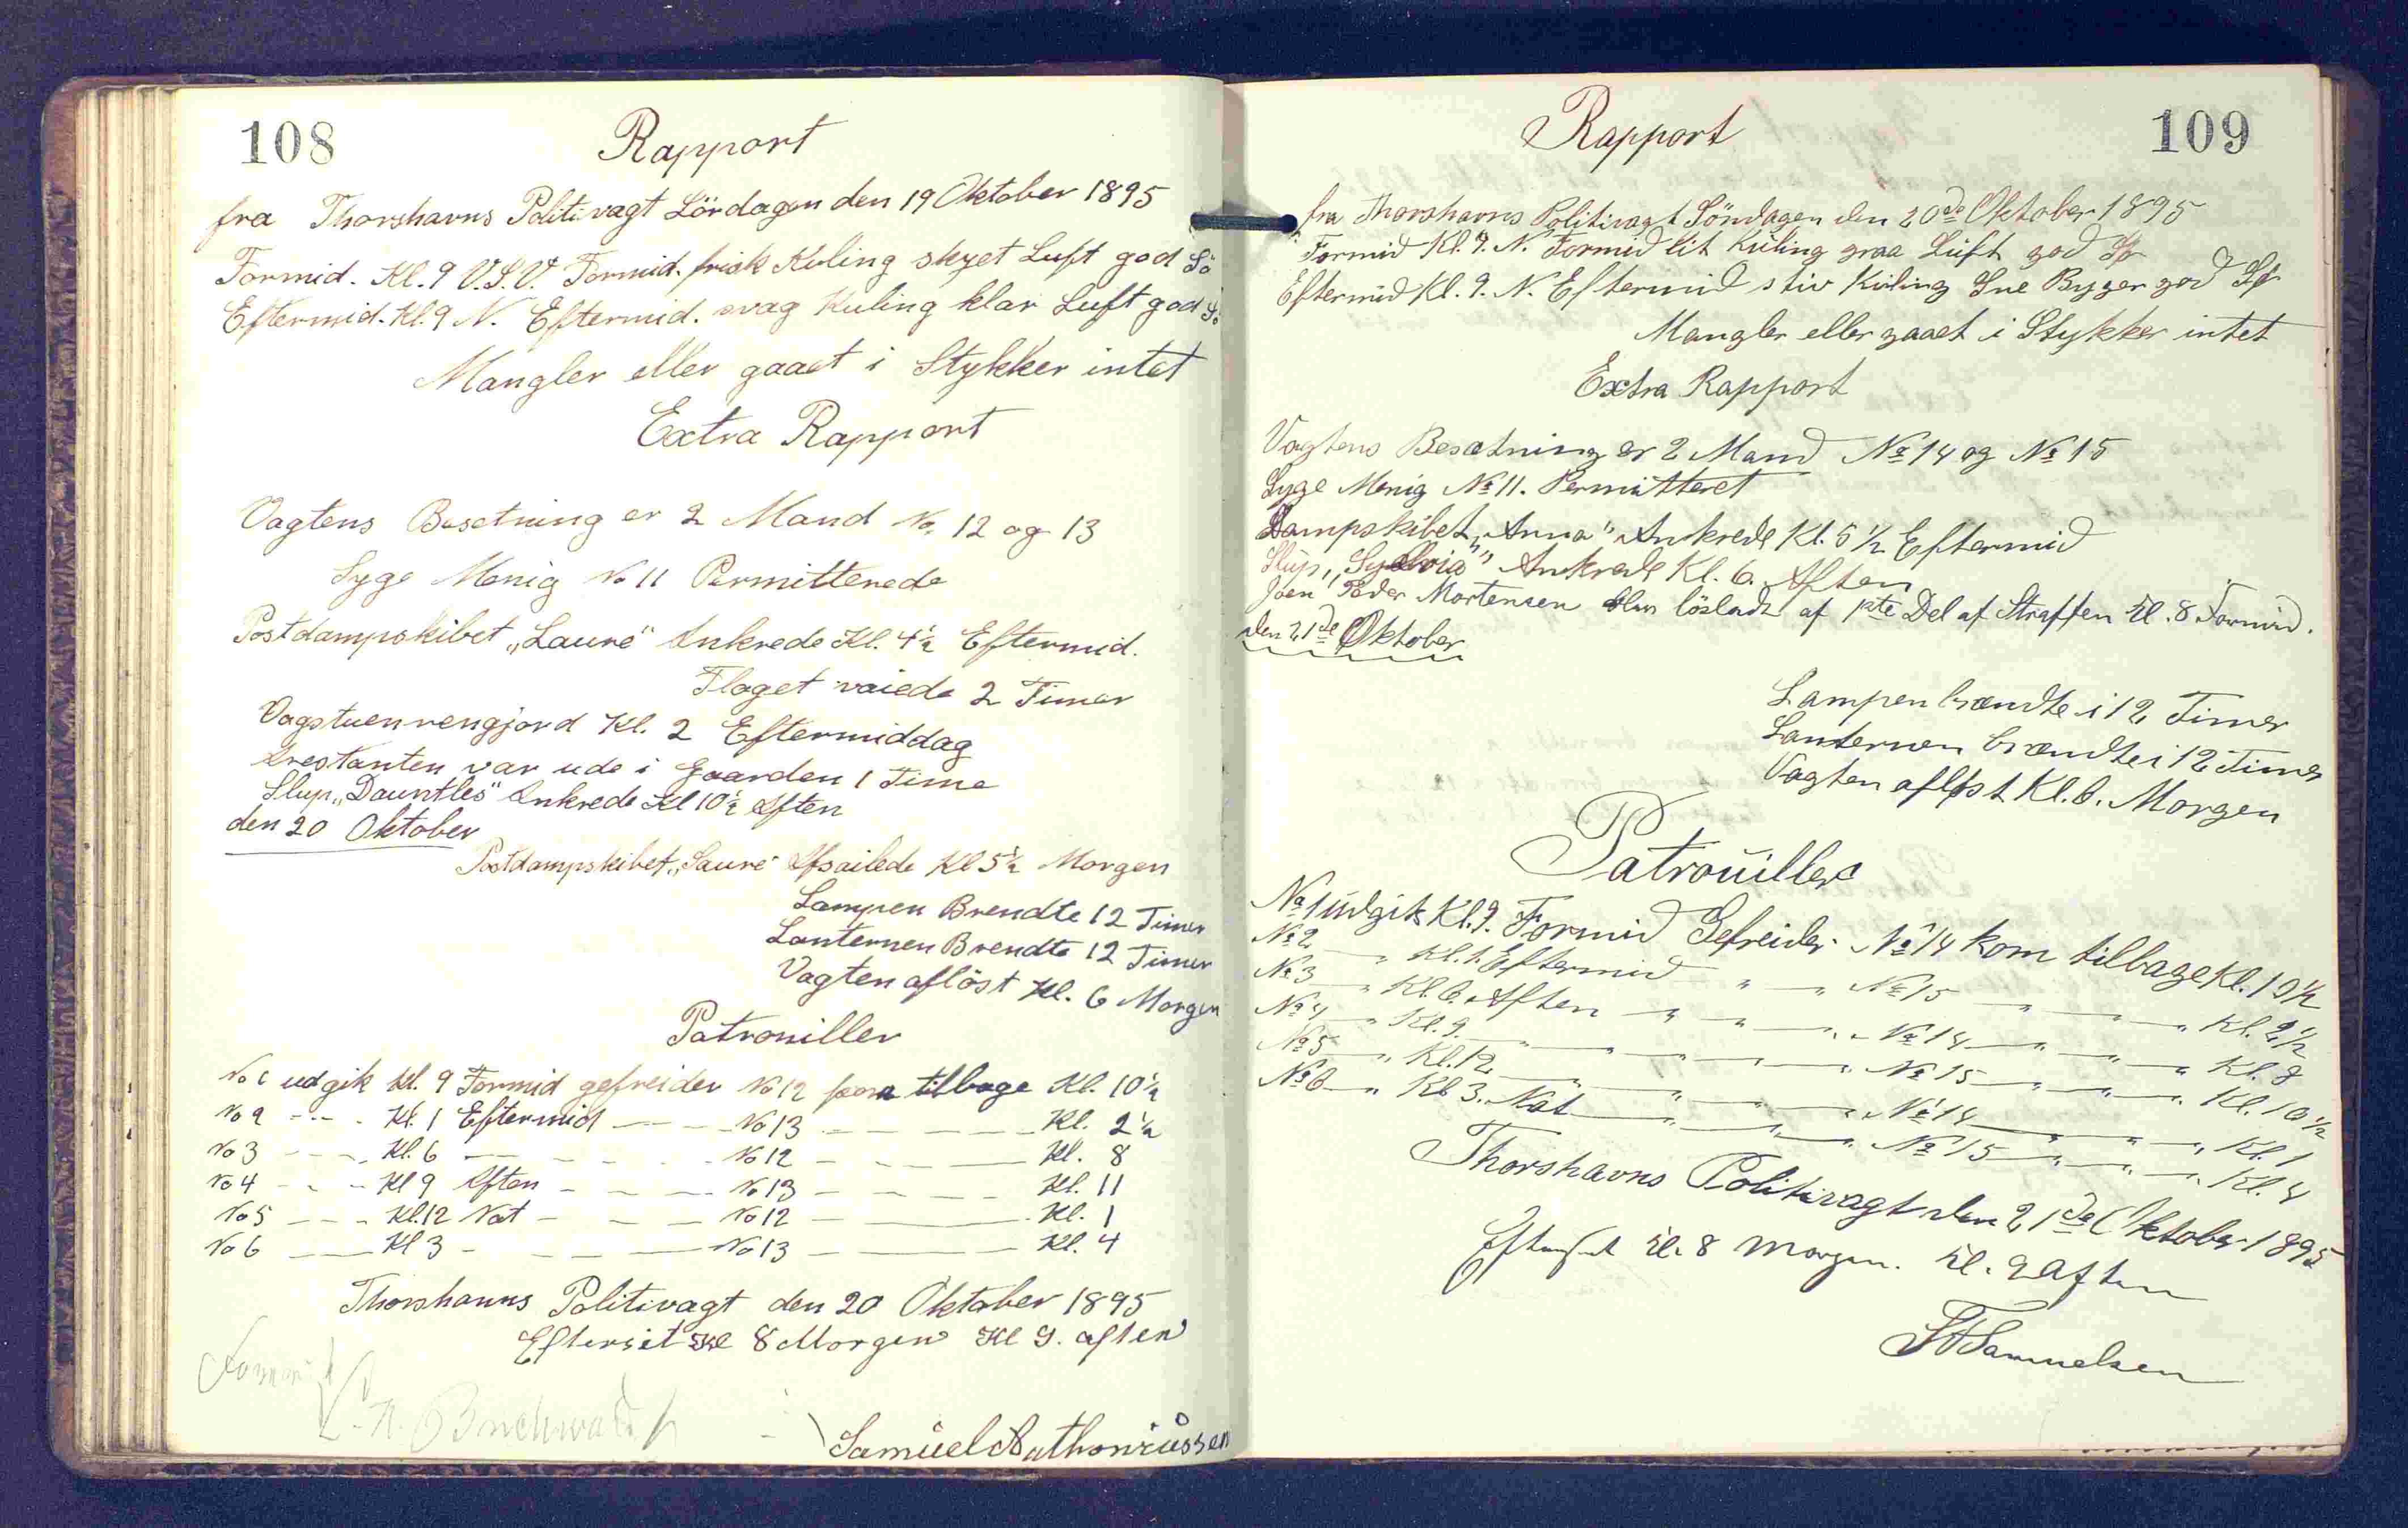 108
Rapport
fra Thorshavns Politivagt Lördagen den 19 Oktober 1895
Formid. Kl. 9 V.S.V. Formid. frisk Kuling skyet Luft god Sö
Eftermid. Kl. 9 N. Eftermid. svag Kuling klar Luft god Sö
Mangler eller gaaet i Stykker intet
Extra Rapport
Vagtens Besetning er 2 Mand No. 12 og 13
Syge Menig No 11 Permitterede
Postdampskibet „Laura" Ankrede Kl. 4½ Eftermid.
Flaget vaiede 2 Timer
Vagstuen rengjord Kl. 2 Eftermiddag
Arestanten var ude i Gaarden 1 Time
Slup „Dauntles" Ankrede Kl 10½ Aften
den 20 Oktober
Postdampskibet „Laura" Afsailede Kl 5½ Morgen
Lampen Brendte 12 Timer
Lanternen Brendte 12 Timer
Vagten aflöst Kl. 6 Morgen
Patrouiller
No 1 udgik Kl. 9 Formid gefreider No 12 kom tilbage Kl. 10½
No 2 - - - Kl. 1 Eftermid — — No 13 — — — Kl. 2½
No 3 - - - Kl. 6 — — — No 12 — — — Kl. 8
No 4 - - - Kl 9 Aften — — — No 13 — — — Kl. 11
No 5 - - - Kl. 12 Nat — — — No 12 — — Kl. 1
No 6 — — Kl 3 — — — No 13 — — Kl. 4
Thorshavns Politivagt den 20 Oktober 1895
Efterset Kl 8 Morgen Kl 9. aften
Buchwald
Samuel Anthoniussen
109
Rapport
fra Thorshavns Politivagt Söndagen den 20de Oktober 1895
Formid Kl. 9. N. Formid lit Kuling graa Luft god Sø
Eftermid Kl. 9. N. Eftermid stiv Kuling Sne Byger god Sø
Mangler eller gaaet i Stykker intet
Extra Rapport
Vagtens Besætning er 2 Mand No 14 og No 15
Syge Menig No 11. Permitteret
Dampskibet „Anna" Ankrede Kl. 5½ Eftermid
Slup „Sylvia" Ankrede Kl. 6. Aften
Joen Peder Mortensen blev lösladt af 1ste Del af Straffen Kl. 8 Formid.
den 21de Oktober
Lampen brændte i 12 Timer
Lanternen brændte i 12 Timer
Vagten afløst Kl. 6. Morgen
Patrouiller
No 1 udgik Kl. 9. Formid Gefreider No 14 kom tilbage Kl. 10½
No 2 " Kl. 1. Eftermid " " No 15 " " " Kl. 2½
No 3 " Kl. 6. Aften " " " No 14 " " " Kl. 8
No 4 " Kl. 9. " " " " No 15 " " " Kl. 10½
No 5 " Kl. 12. " " " " No 14 " " " Kl. 1
No 6 " Kl. 3. Nat " " " No 15 " " " Kl. 4
Thorshavns Politivagt den 21de Oktober 1895
Efterset Kl. 8 Morgen. Kl. 9 Aften
Samuelsen